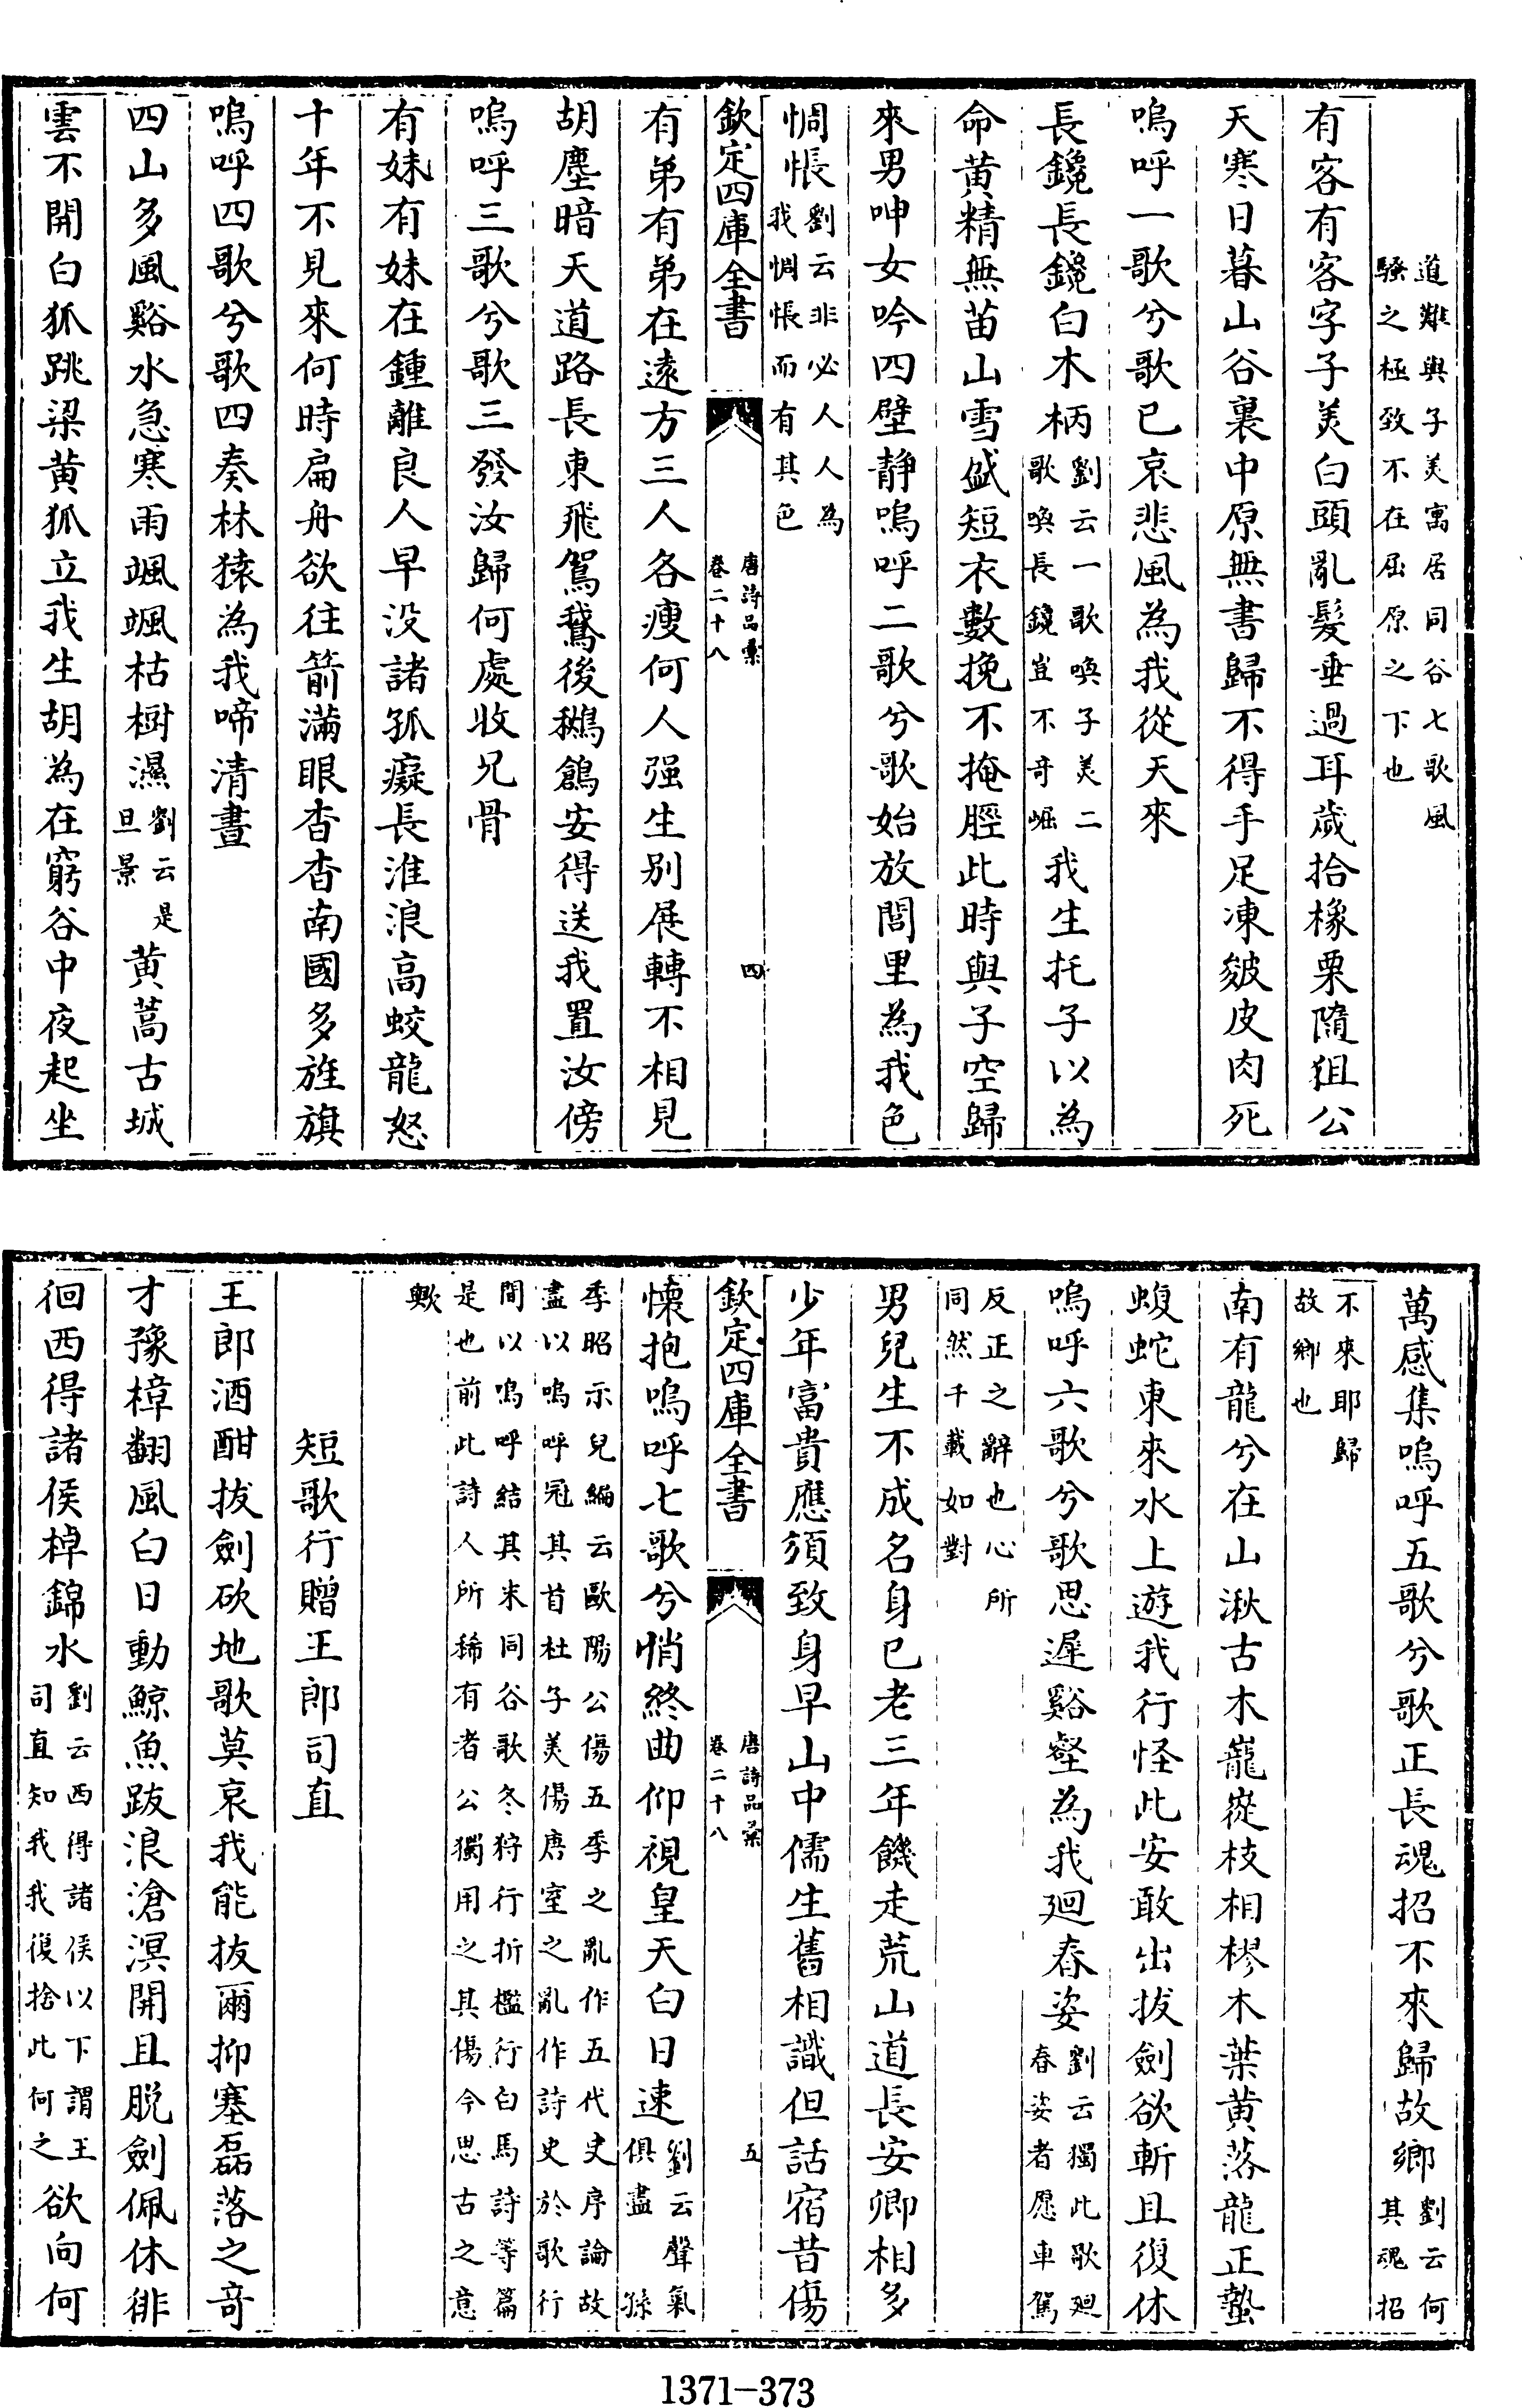 道難與子美寓居同谷七歌風
騷之極致不在屈原之下也
有客有客字子美白頭亂髮垂過耳歲拾橡栗隨狙公
天寒日暮山谷裏中原無書歸不得手足凍皴皮肉死
嗚呼一歌兮歌已哀悲風為我從天來
長鑱長鑱白木柄劉云一歌喚子美二歌喚長鑱豈不奇崛我生托子以為
命黄精無苗山雪盛短衣數挽不掩脛此時與子空歸
來男呻女吟四壁靜嗚呼二歌兮歌始放閭里為我色
惆悵劉云非必人人為我惆悵而有其色
欽定四庫全書
唐詩品彙
卷二十八
四
有弟有弟在遠方三人各瘦何人强生别展轉不相見
胡塵暗天道路長東飛鴐鵞後鶖鶬安得送我置汝傍
嗚呼三歌兮歌三發汝歸何處收兄骨
有妹有妹在鍾離良人早没諸孤癡長淮浪高蛟龍怒
十年不見來何時扁舟欲往箭滿眼杳杳南國多旌旗
嗚呼四歌兮歌四奏林猿為我啼清晝
四山多風谿水急寒雨颯颯枯樹濕劉云是旦景黄蒿古城
雲不開白狐跳梁黄狐立我生胡為在窮谷中夜起坐
萬感集嗚呼五歌兮歌正長魂招不來歸故鄉劉云何其魂招
不來耶歸故鄉也
南有龍兮在山湫古木巃嵸枝相樛木葉黄落龍正蟄
蝮蛇東來水上遊我行怪此安敢出拔劍欲斬且復休
嗚呼六歌兮歌思遲谿壑為我迴春姿劉云獨此歌迴春姿者愿車駕
反正之辭也心所同然千載如對
男兒生不成名身已老三年饑走荒山道長安卿相多
少年富貴應須致身早山中儒生舊相識但話宿昔傷
欽定四庫全書
唐詩品彙
卷二十八
五
懷抱嗚呼七歌兮悄終曲仰視皇天白日速劉云聲氣俱盡 孫
季昭示兒編云歐陽公傷五季之亂作五代史序論故
盡以嗚呼冠其首杜子美傷唐室之亂作詩史於歌行
間以嗚呼結其末同谷歌冬狩行折檻行白馬詩等篇
是也前此詩人所稀有者公獨用之其傷今思古之意
歟
短歌行贈王郎司直
王郎酒酣拔劍斫地歌莫哀我能拔爾抑塞磊落之奇
才豫樟翻風白日動鯨魚跋浪滄溟開且脱劍佩休徘
徊西得諸侯棹錦水劉云西得諸侯以下謂王司直知我我復捨此何之欲向何
1371-373